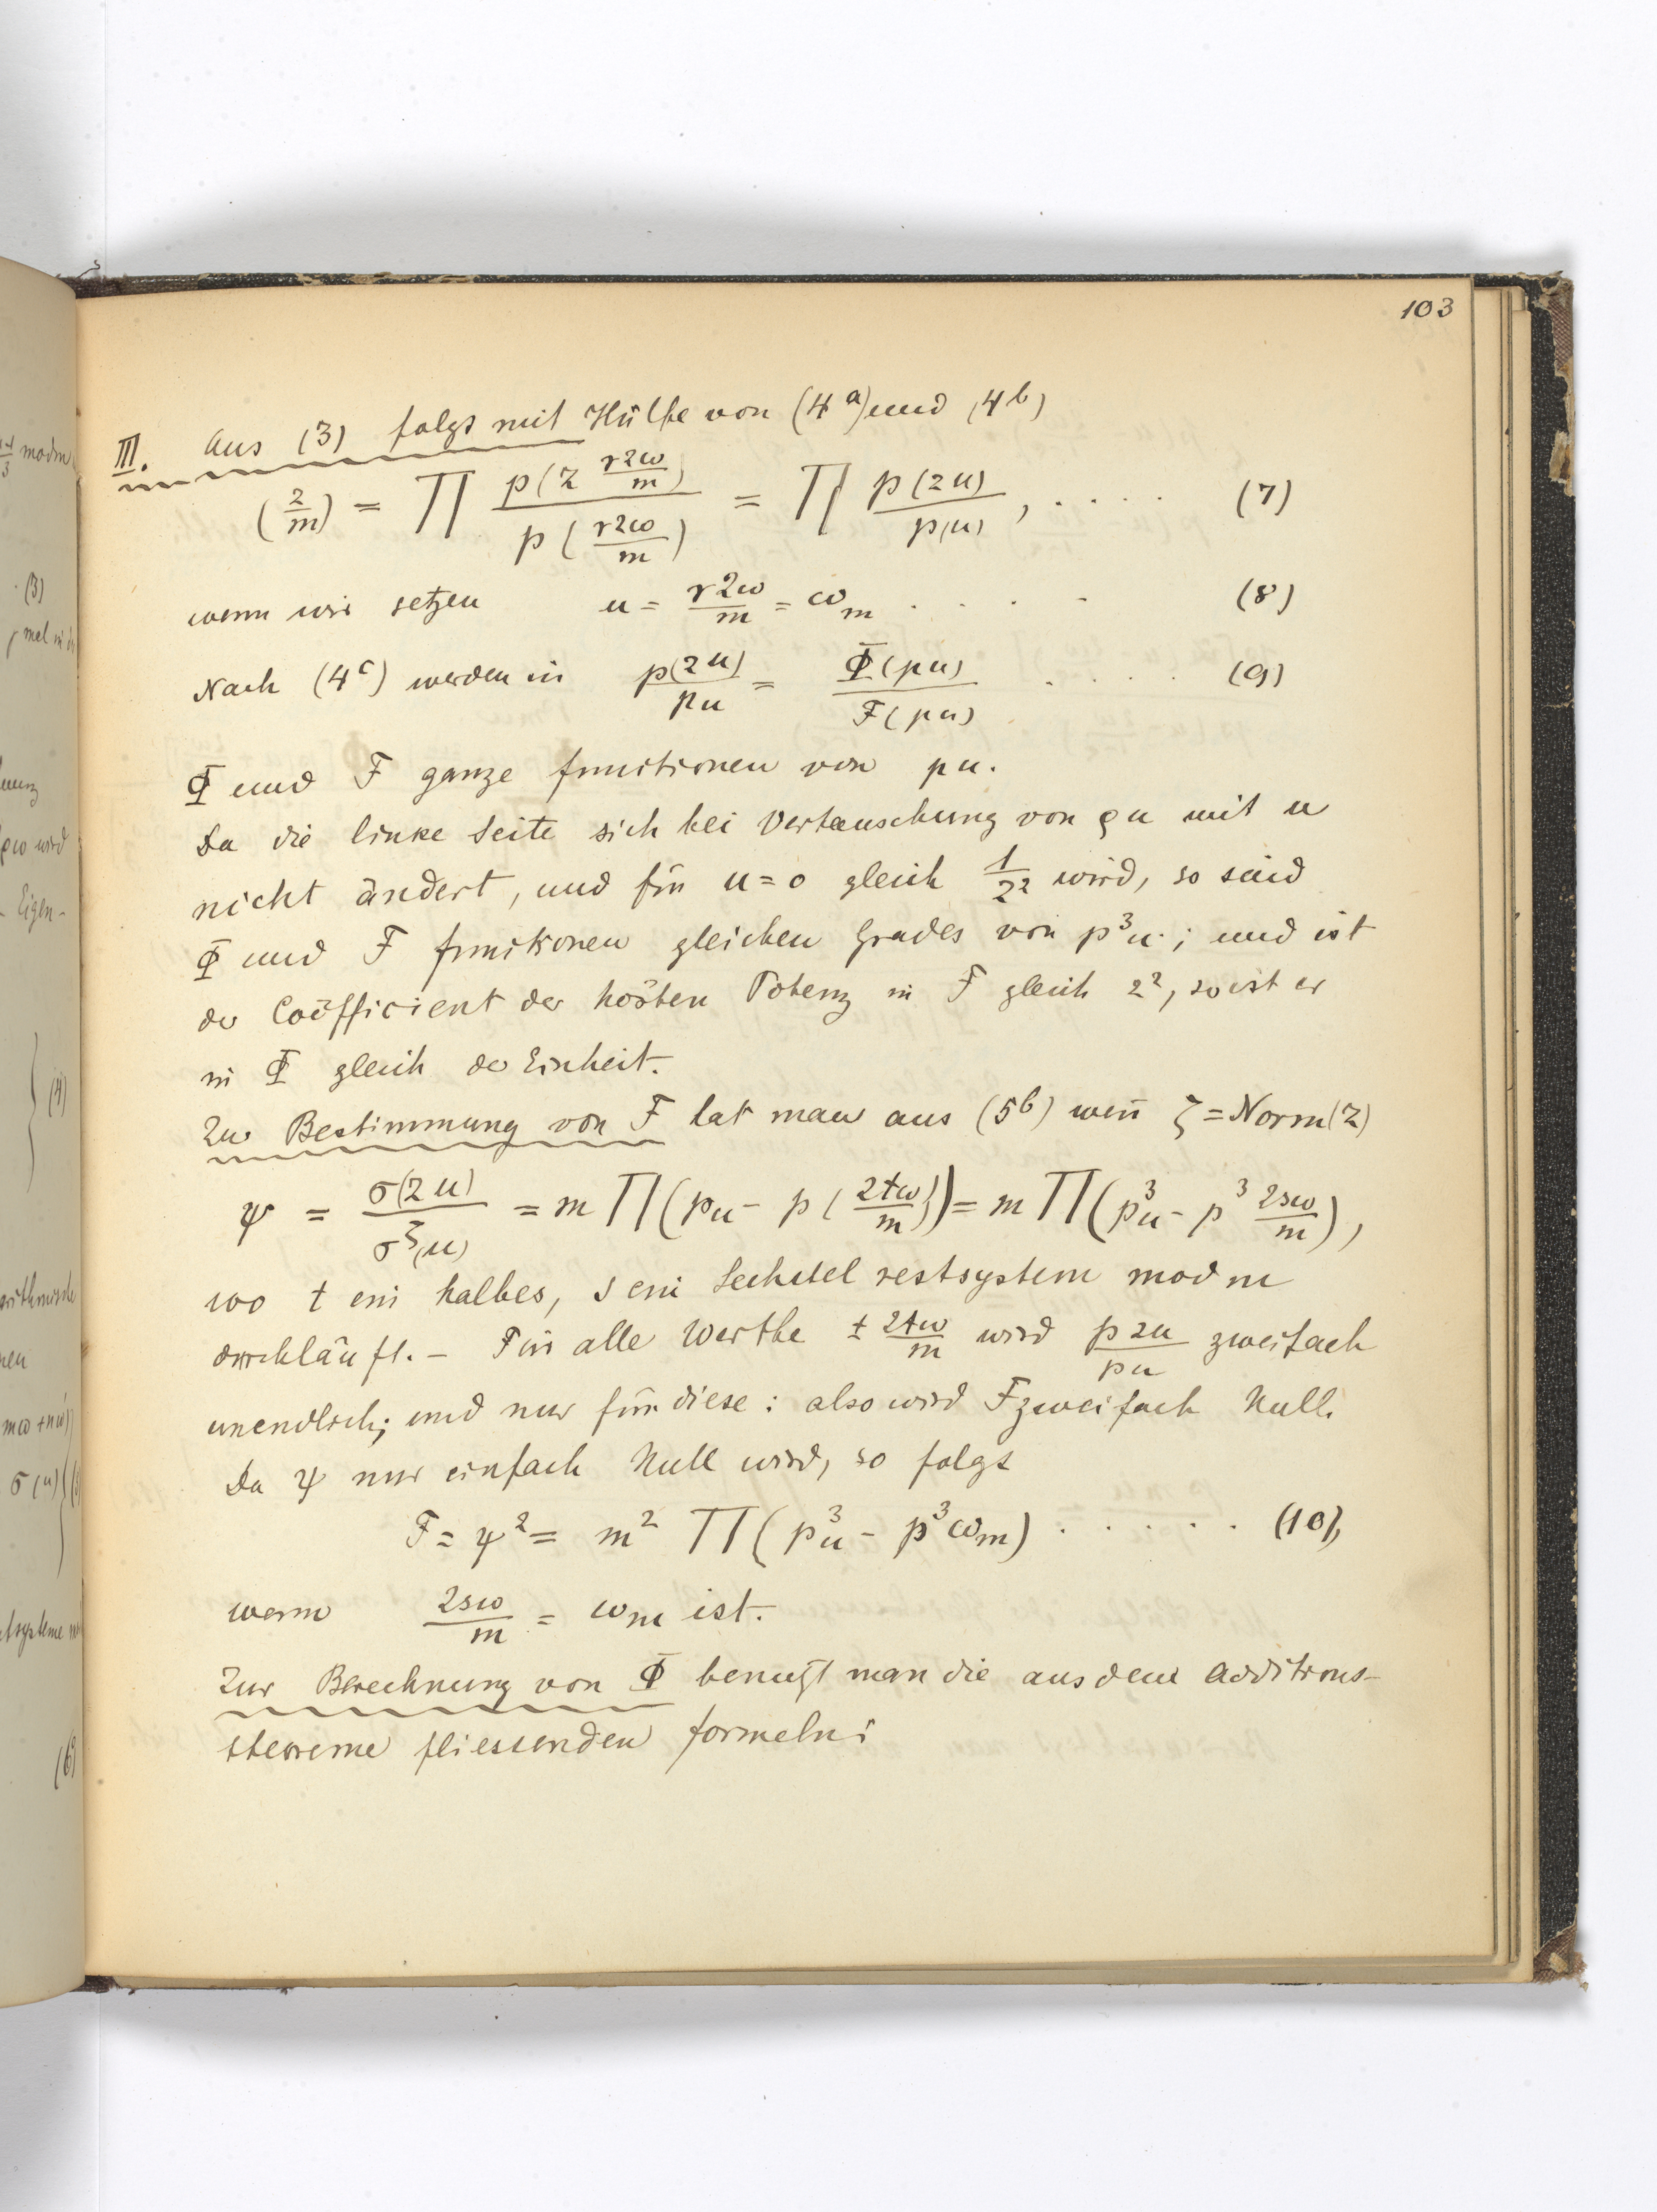 103
III. Aus (3) folgt mit Hülfe von (4^a) und (4^b)
(2/m) = ∏ p(2 r2ω/m) / p(r2ω/m) = ∏ p(2u)/p(u), . . . . (7)
wenn wir setzen u = r2ω/m = ω_m . . . . (8)
Nach (4^c) werden in p(2u)/pu = Φ(pu)/F(pu) . . . . . (9)
Φ und F ganze Functionen von pu.
Da die linke Seite sich bei Vertauschung von ρu mit u
nicht ändert, und für u=0 gleich 1/2² wird, so sind
Φ und F Funktionen gleichen Grades von p³u; und ist
der Coëfficient der höbten Potenz in F gleich 2², so ist er
in Φ gleich der Einheit.
Zur Bestimmung von F hat man aus (5^b) wen̄ ζ = Norm(2)
ψ = σ(2u)/σ^ζ(u) = m ∏(pu - p(2tω/m)) = m ∏(p³u - p³ 2sω/m),
wo t ein halbes, s ein Sechstel restsystem mod m
durchläuft. – Für alle Werthe ± 2tω/m wird p2u/pu zweifach
unendlich; und nur für diese: also wird F zweifach Null.
Da ψ nur einfach Null wird, so folgt
F = ψ² = m² ∏(p³u - p³ω_m) . . . . . (10),
wenn 2sω/m = ω_m ist.
Zur Berechnung von Φ benutzt man die aus dem Additions-
theoreme fliessenden Formeln:
mod m
(3)
(4)
ρω wird
- Eigen-
mω + nω'
σ(u)
(6)